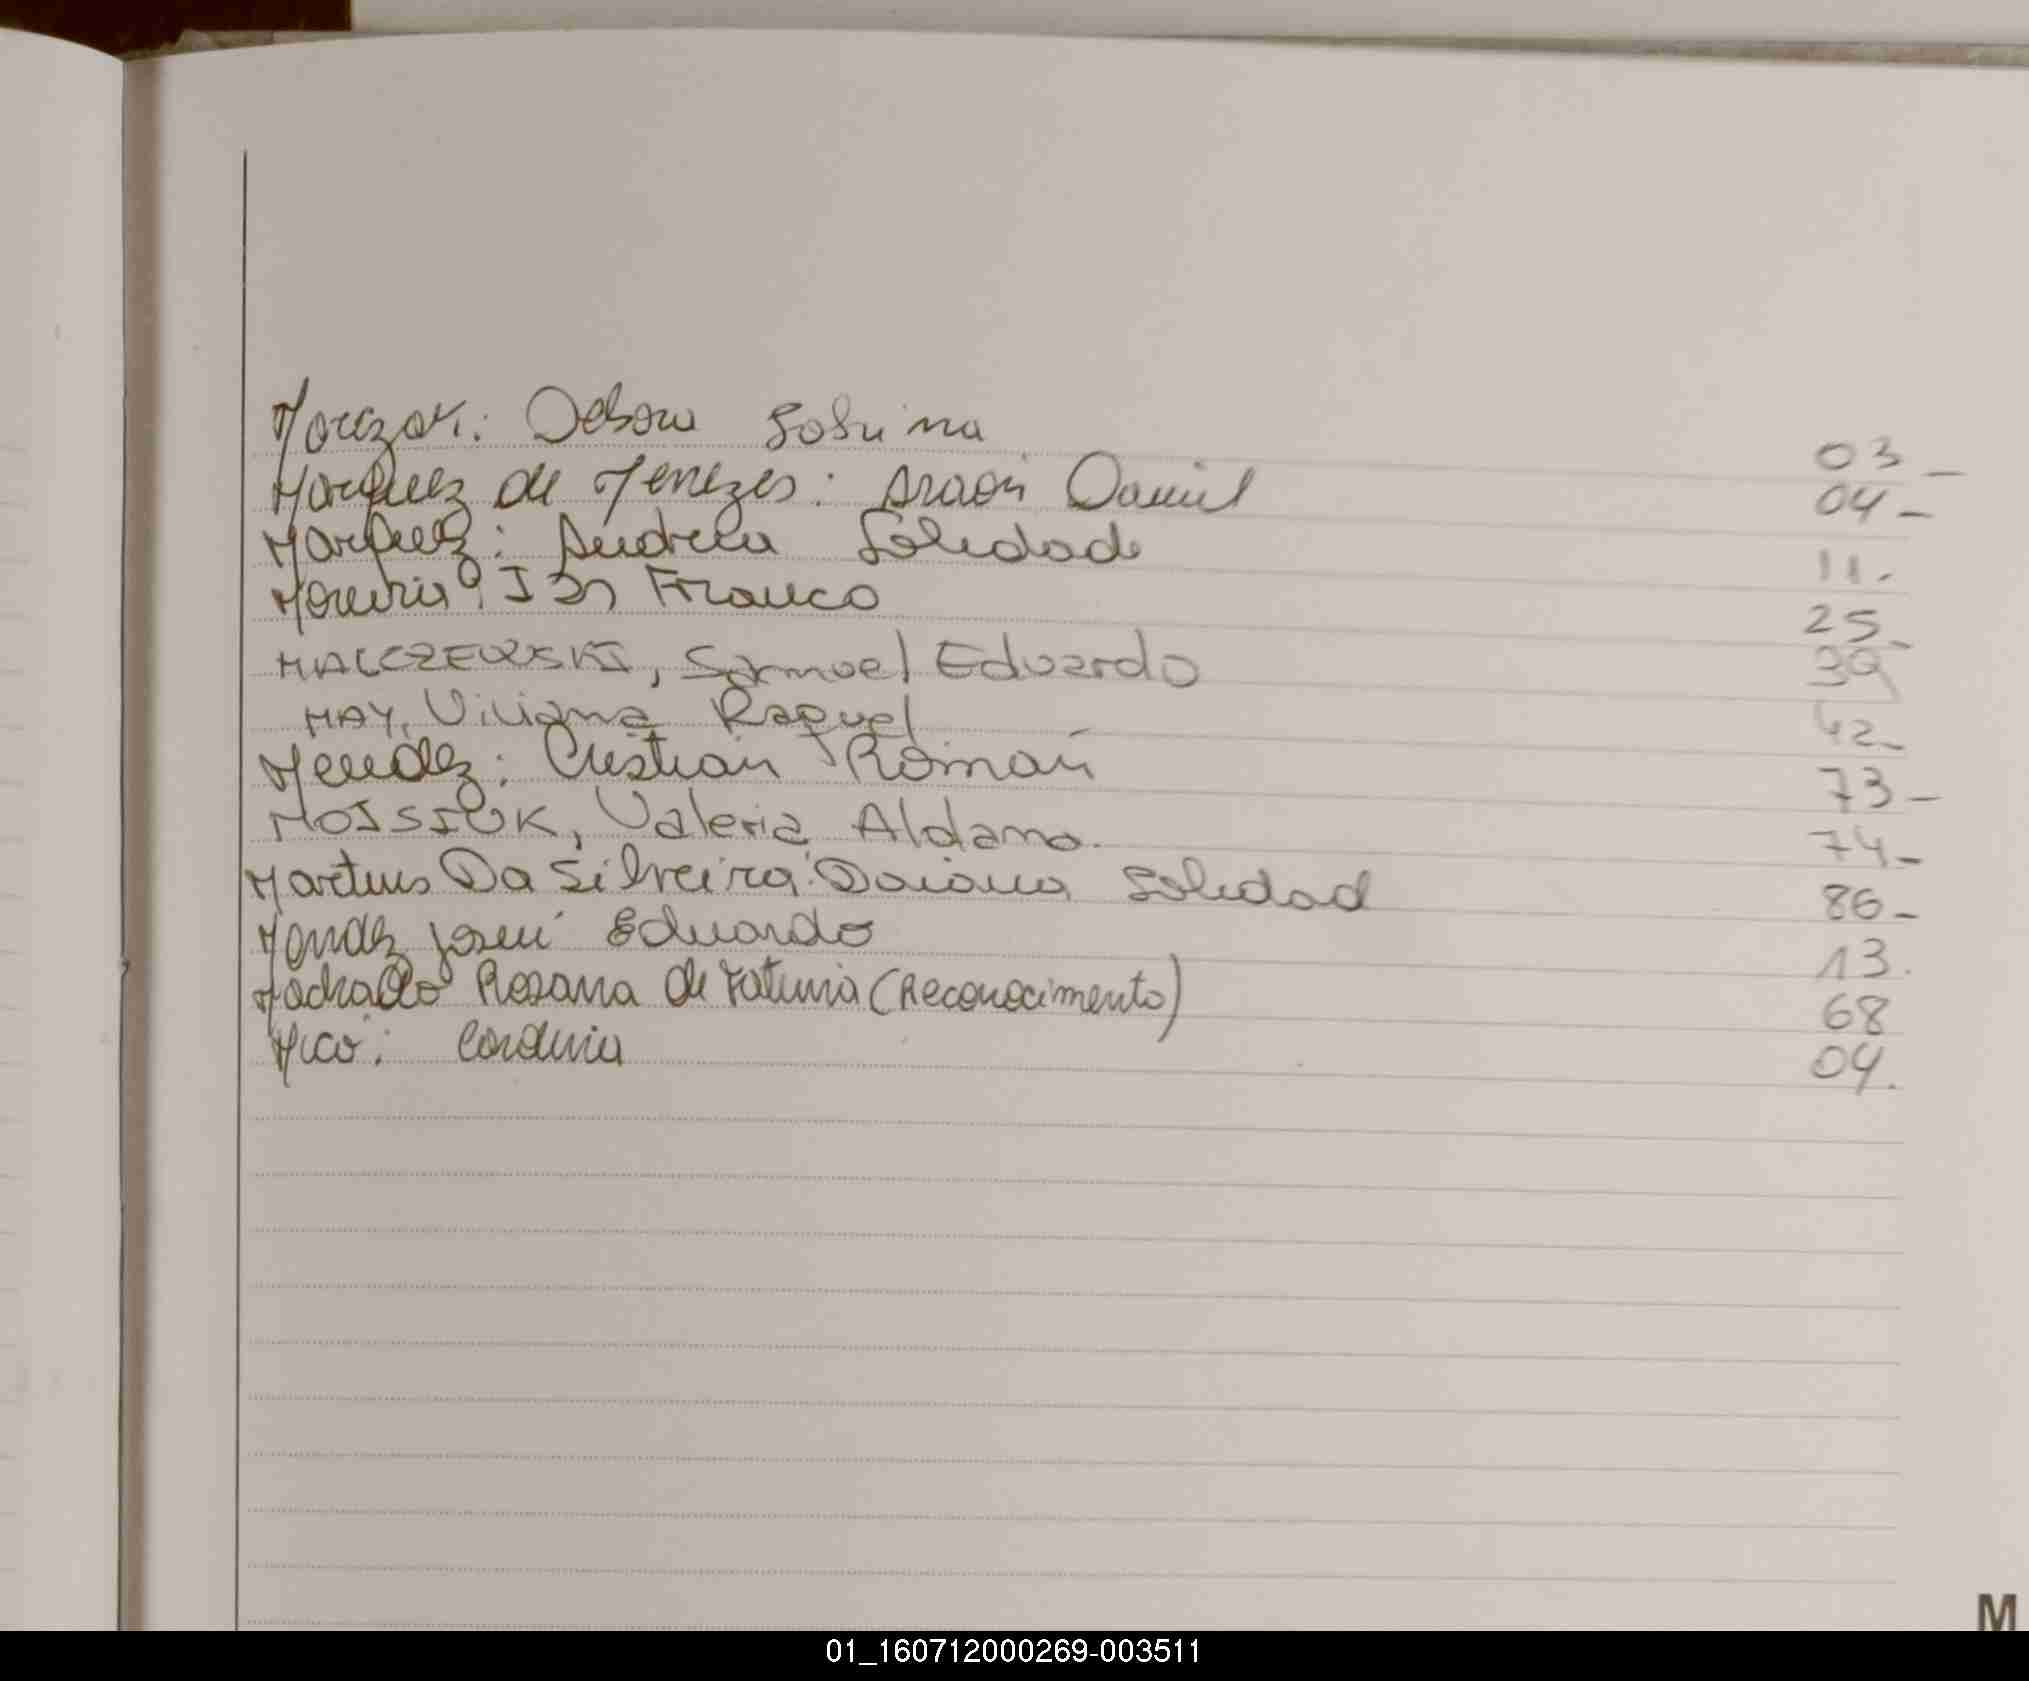 Morezak: Debora Sabrina 03-
Marquez de Menezes: Araón Daniel 04-
Marquez: Andreia Soledade 11.
Moreira: Ian Franco 25-
MALCZEWSKI, Samuel Eduardo 39
MAY, Viviana Raquel 42-
Mendez: Cristian Román 73-
MOJSIUK, Valeria Aldana. 74-
Martins Da Silveira: Daiana Soledad 86-
Mendez Eduardo 13.
Machado Rosana de Fatima (Reconocimento) 68
04.
M
01_160712000269-003511